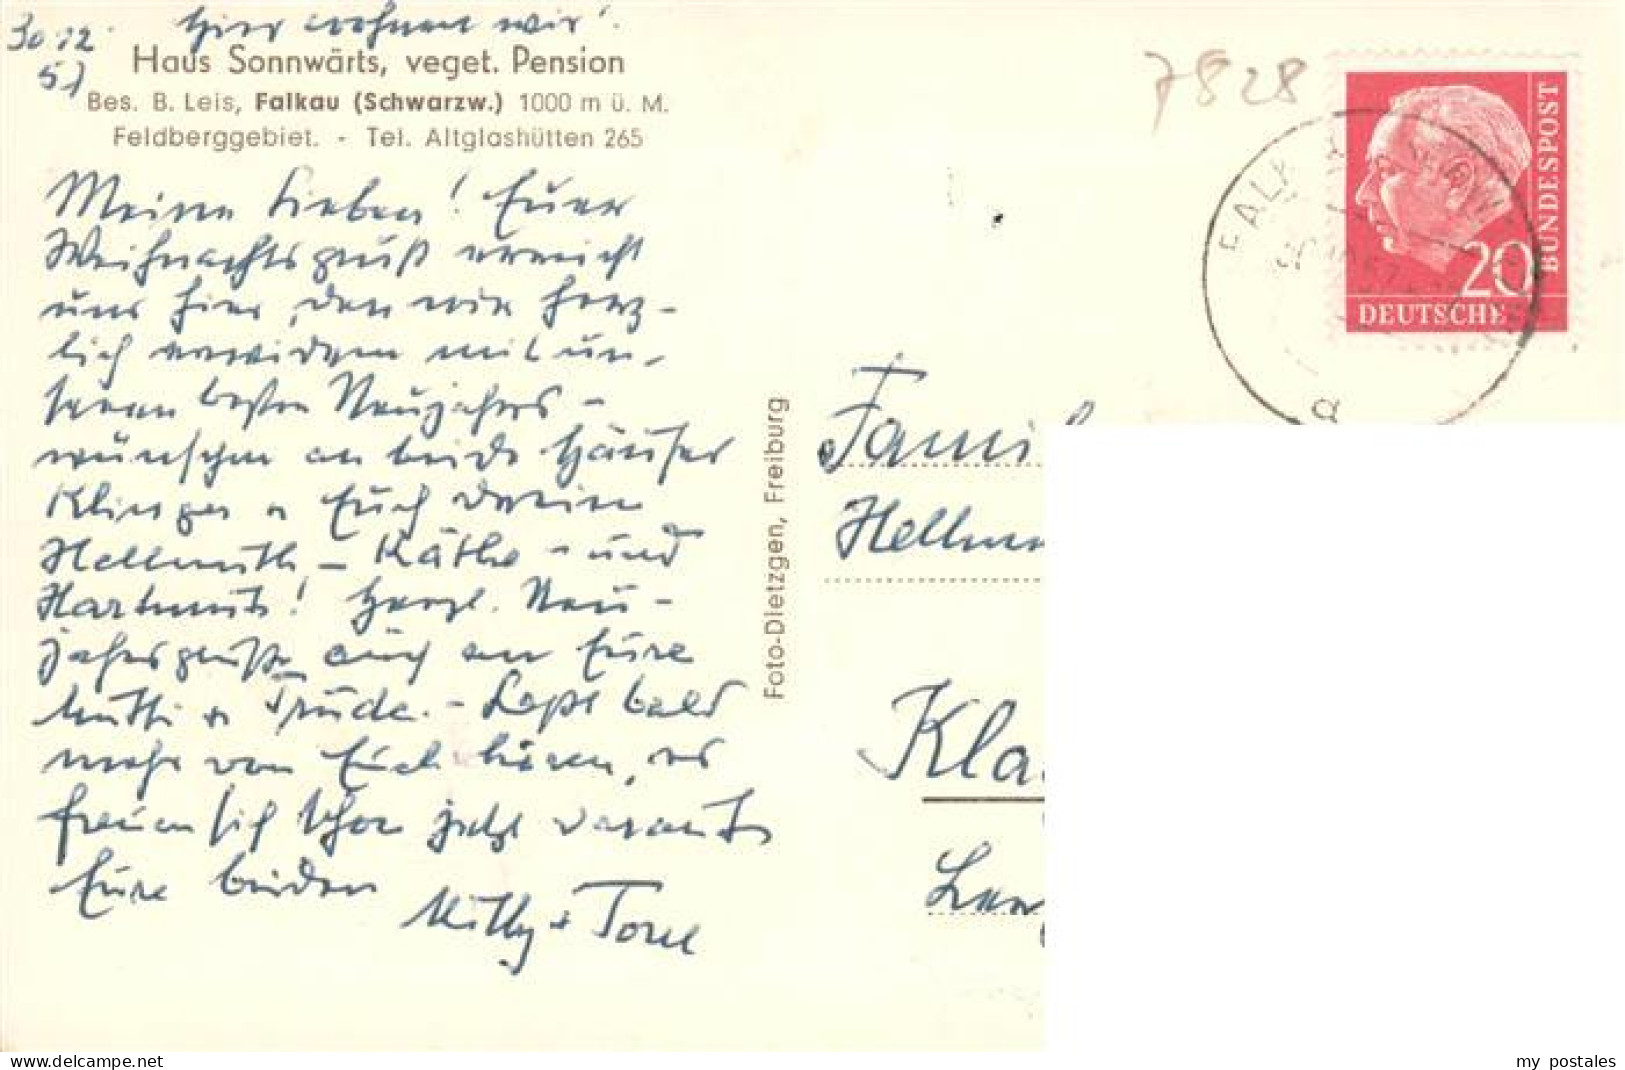 30.12.
57
Hier wohnen wir!
Haus Sonnwärts, veget. Pension
Bes. B. Leis, Falkau (Schwarzw.) 1000 m ü. M.
Feldberggebiet. - Tel. Altglashütten 265
Meine Lieben! Euer
Weihnachtsgruß erreicht
uns hier, den wir herz-
lich erwidern mit un-
seren besten Neujahrs-
wünschen an beide Häuser
Klinger u Euch darin
Hellmuth - Käthe - und
Hartmut! Herzl. Neu-
jahrsgrüße auch an Eure
Mutti u Trude. - Laßt bald
mehr von Euch hören, es
freuen sich schon jetzt darauf
Eure beiden
Willy + Torel
Foto-Dietzgen, Freiburg
7828
DEUTSCHE
BUNDESPOST
20
FALK
Famil
Hellmu
Kla